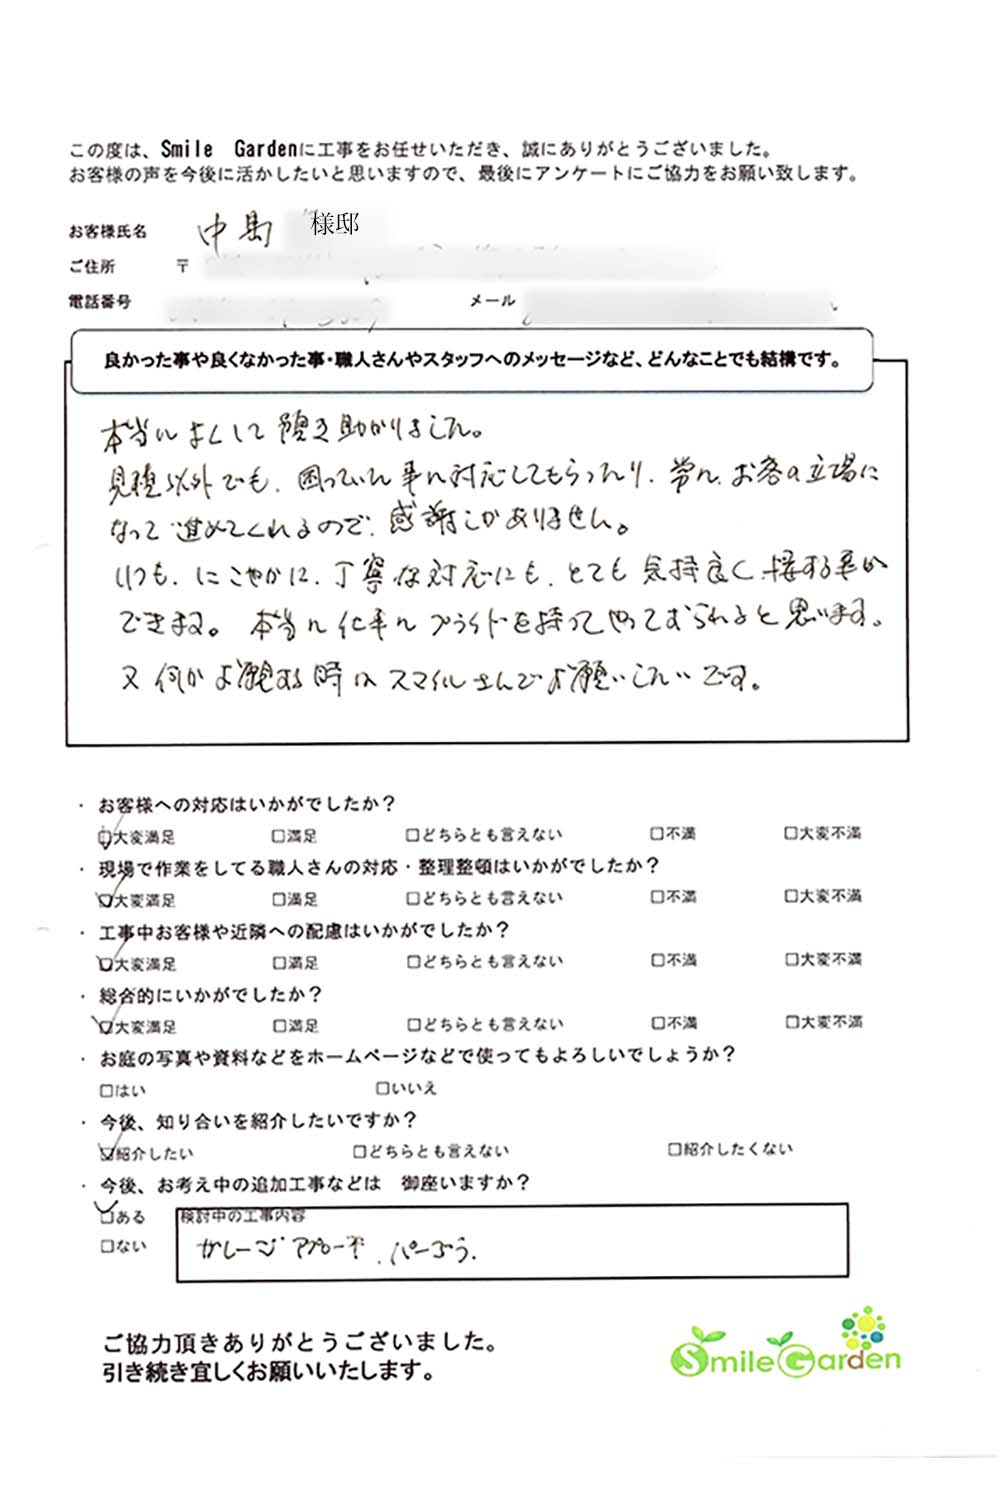 この度は、Smile Gardenに工事をお任せいただき、誠にありがとうございました。
お客様の声を今後に活かしたいと思いますので、最後にアンケートにご協力をお願い致します。
お客様氏名 中島 様邸
ご住所 〒
電話番号 メール
良かった事や良くなかった事・職人さんやスタッフへのメッセージなど、どんなことでも結構です。
本当によくして頂き助かりました。
見積以外でも、困っていた事に対応してもらったり、常に、お客の立場に
なって進めてくれるので、感謝しかありません。
いつも、にこやかに、丁寧な対応にも、とても気持良く接する事が
できます。本当に仕事にプライドを持ってやっておられると思います。
又何かお願する時はスマイルさんでお願いしたいです。
・お客様への対応はいかがでしたか？
□大変満足 □満足 □どちらとも言えない □不満 □大変不満
・現場で作業をしてる職人さんの対応・整理整頓はいかがでしたか？
□大変満足 □満足 □どちらとも言えない □不満 □大変不満
・工事中お客様や近隣への配慮はいかがでしたか？
□大変満足 □満足 □どちらとも言えない □不満 □大変不満
・総合的にいかがでしたか？
□大変満足 □満足 □どちらとも言えない □不満 □大変不満
・お庭の写真や資料などをホームページなどで使ってもよろしいでしょうか？
□はい □いいえ
・今後、知り合いを紹介したいですか？
□紹介したい □どちらとも言えない □紹介したくない
・今後、お考え中の追加工事などは 御座いますか？
□ある 検討中の工事内容
□ない ガレージ アプローチ、パーゴラ、
ご協力頂きありがとうございました。
引き続き宜しくお願いいたします。
Smile Garden